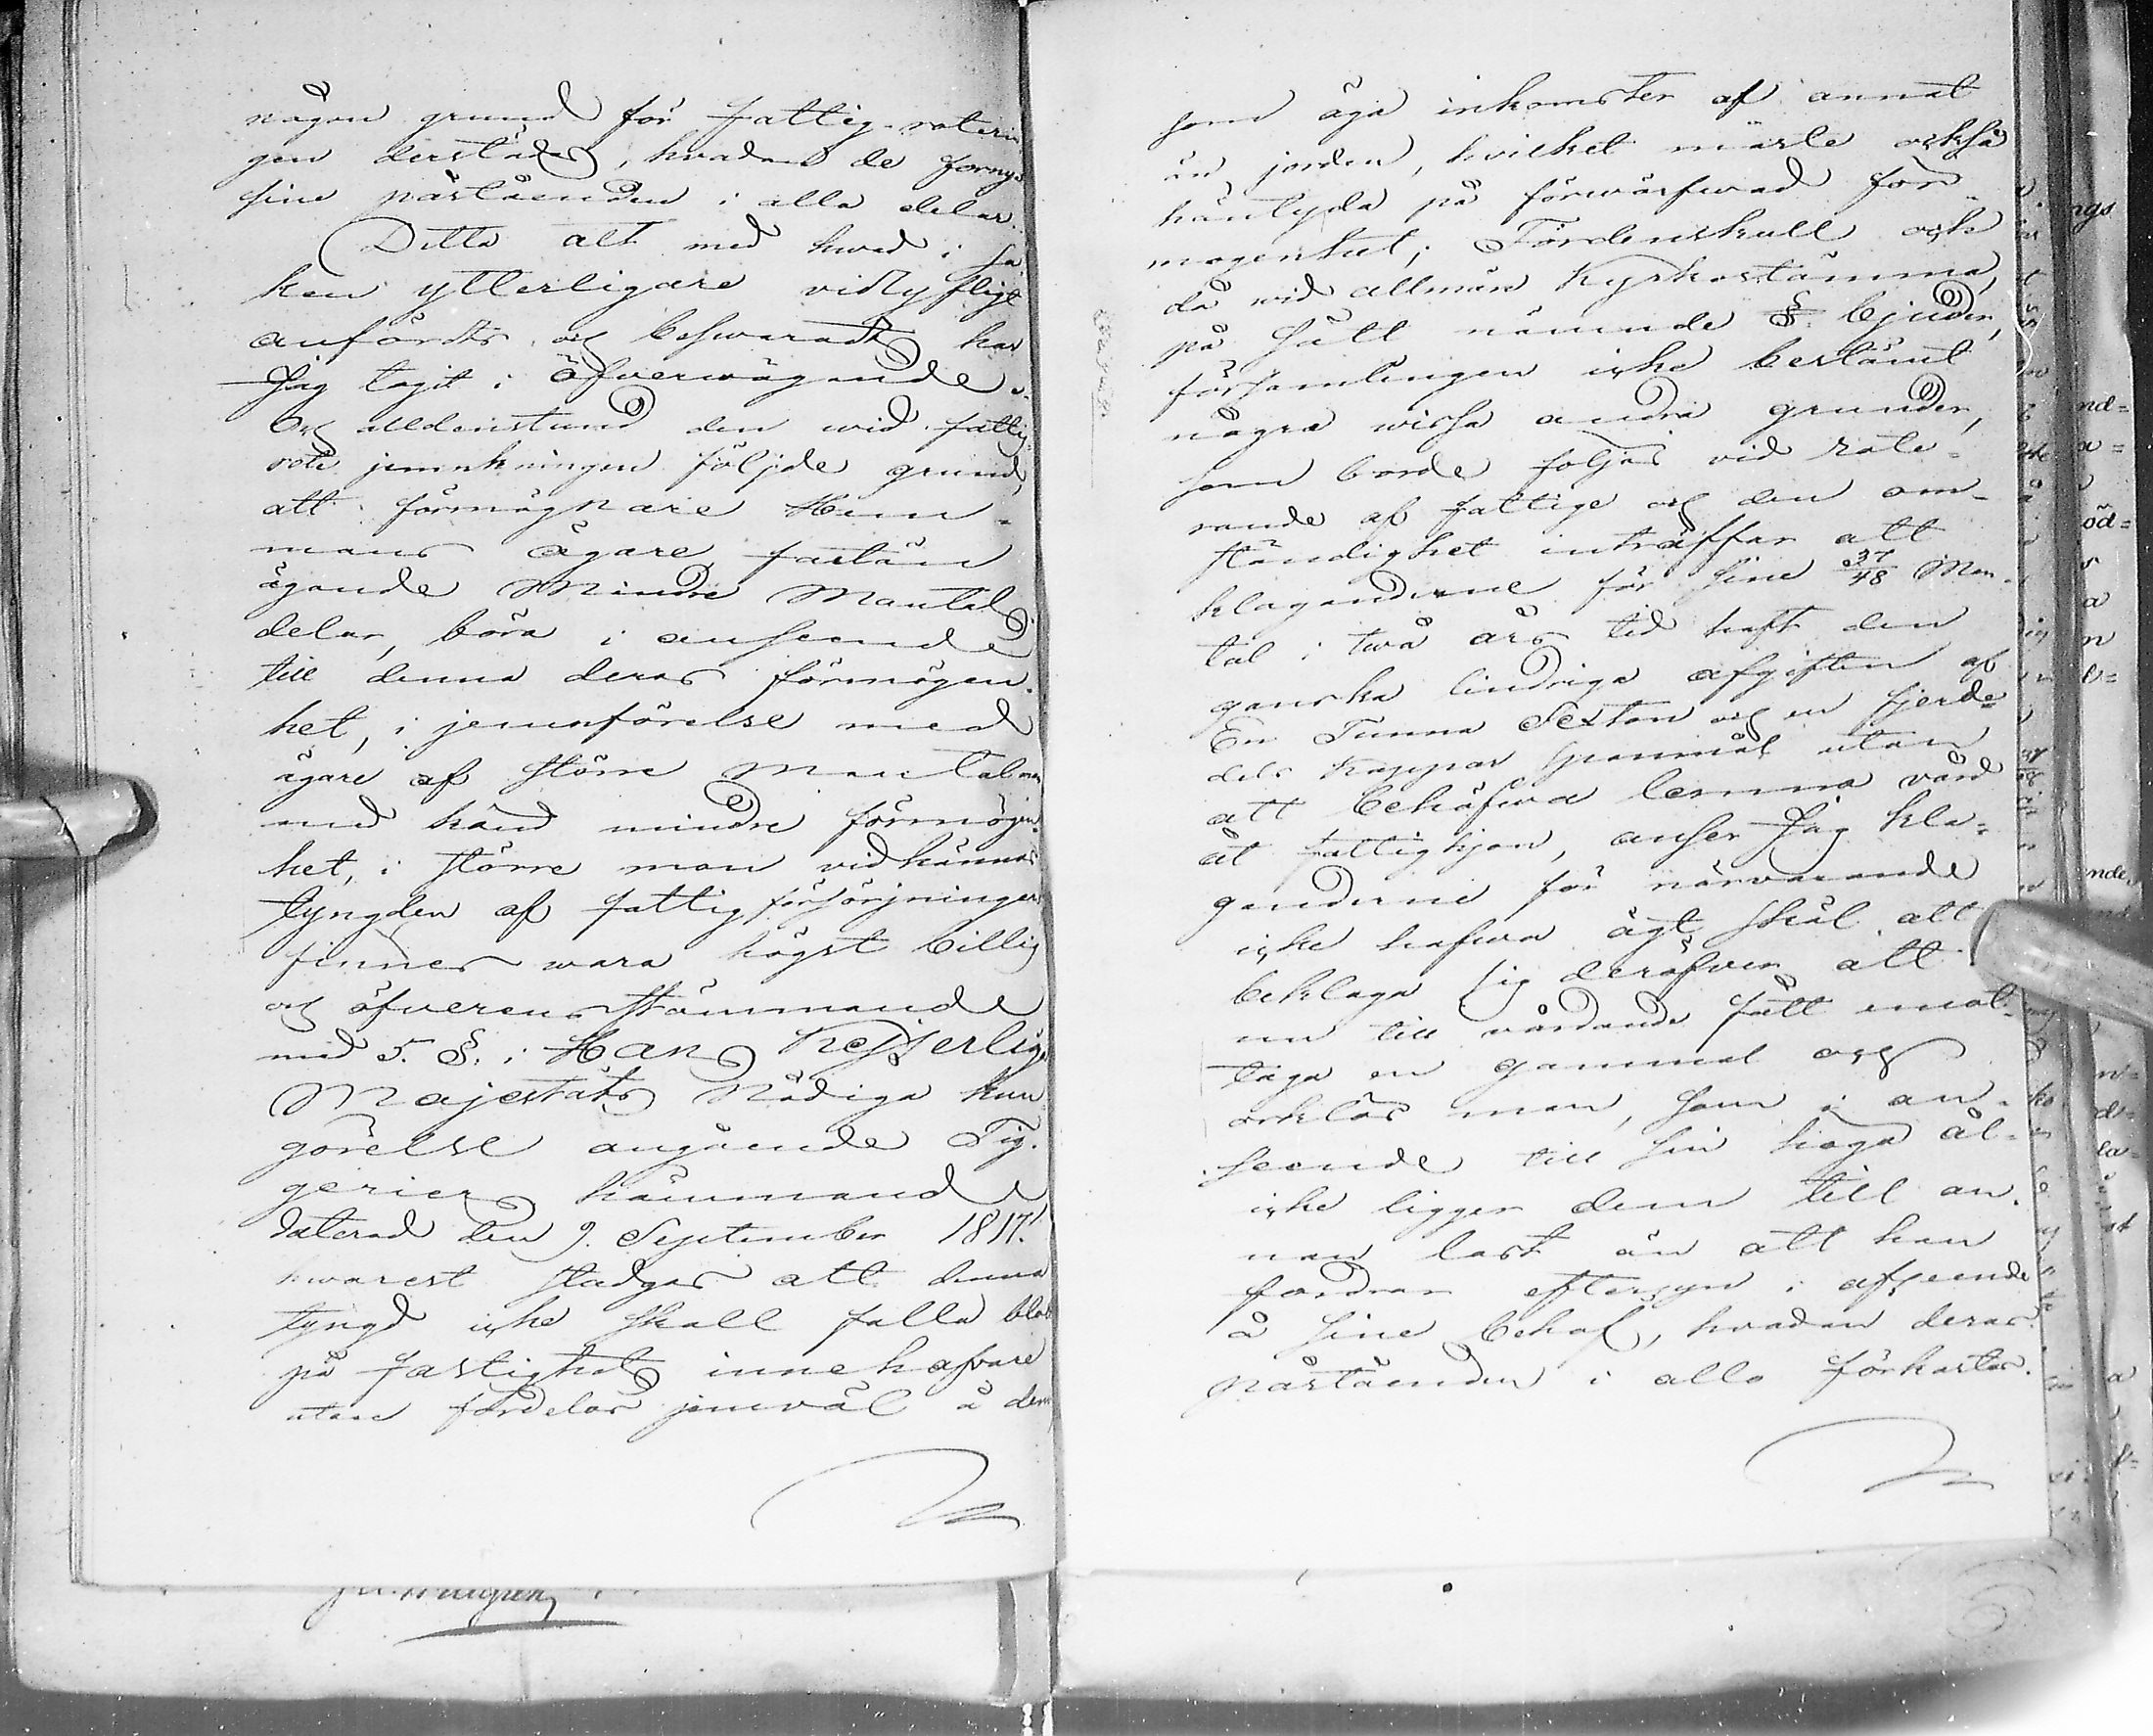 någon grund för fattig-roterin
gen derstädes, hvadan de forny
sine påståenden i alla delar.
Detta alt med hvad i sa
ken ytterligare vidlyftigt
anfördts och beswaradts har
Jag tagit i öfverwägande.
Och alldenstund den wid fattig
rote jemnkningen följde grund,
att förmögnare Hem-
mans ägare fastän
ägande Mindre Mantals
delar, böra i anseende
till denna deras förmögen
het, i jemnförelse med
ägare af större Mantal men
med känd mindre förmögen
het, i större mon vidkännas
tyngden af fattigförsörjningen
finnes wara högst billig
och öfverensstämmande
med 5. §. i Hans Kejserliga
Majestäts Nådiga kun
görelse angående Tig-
geriers hämmande
daterad den 9. September 1817.
hvarest stadgas att denna
tyngd icke skall falla blott
på fastighets innehafvare
utan fördelas jemväl å dem
som äga inkomster af annat
än jorden, hvilket måste också
häntyda på förwärfwad för-
mögenhet; Fördenskull och
då wid allmän Kyrkostämma,
på sätt nämnde §. bjuder,
församlingen icke bestämt
några wissa andra grunder,
som borde följas vid rote-
rande af fattige och den om-
ständighet inträffar att
klaganderne för sine 37/48 Man-
tal i twå års tid haft den
ganska lindriga afgiften af
En Tunna Sexton och en fjerde-
dels kappar spannmål utan
att behöfwa lemna vård
åt fattighjon, anser Jag kla-
ganderne för närvarande
icke hafwa ägt skäl att
beklaga sig deröfver att
nu till vårdande fått emot-
taga en gammal och
orklös man, som i an-
seende till sin höga ål-
icke ligger dem till an-
nan last än att han
fordrar eftersyn i afseende
å sine behof, hvadan deras
påståenden i allo förkastas.